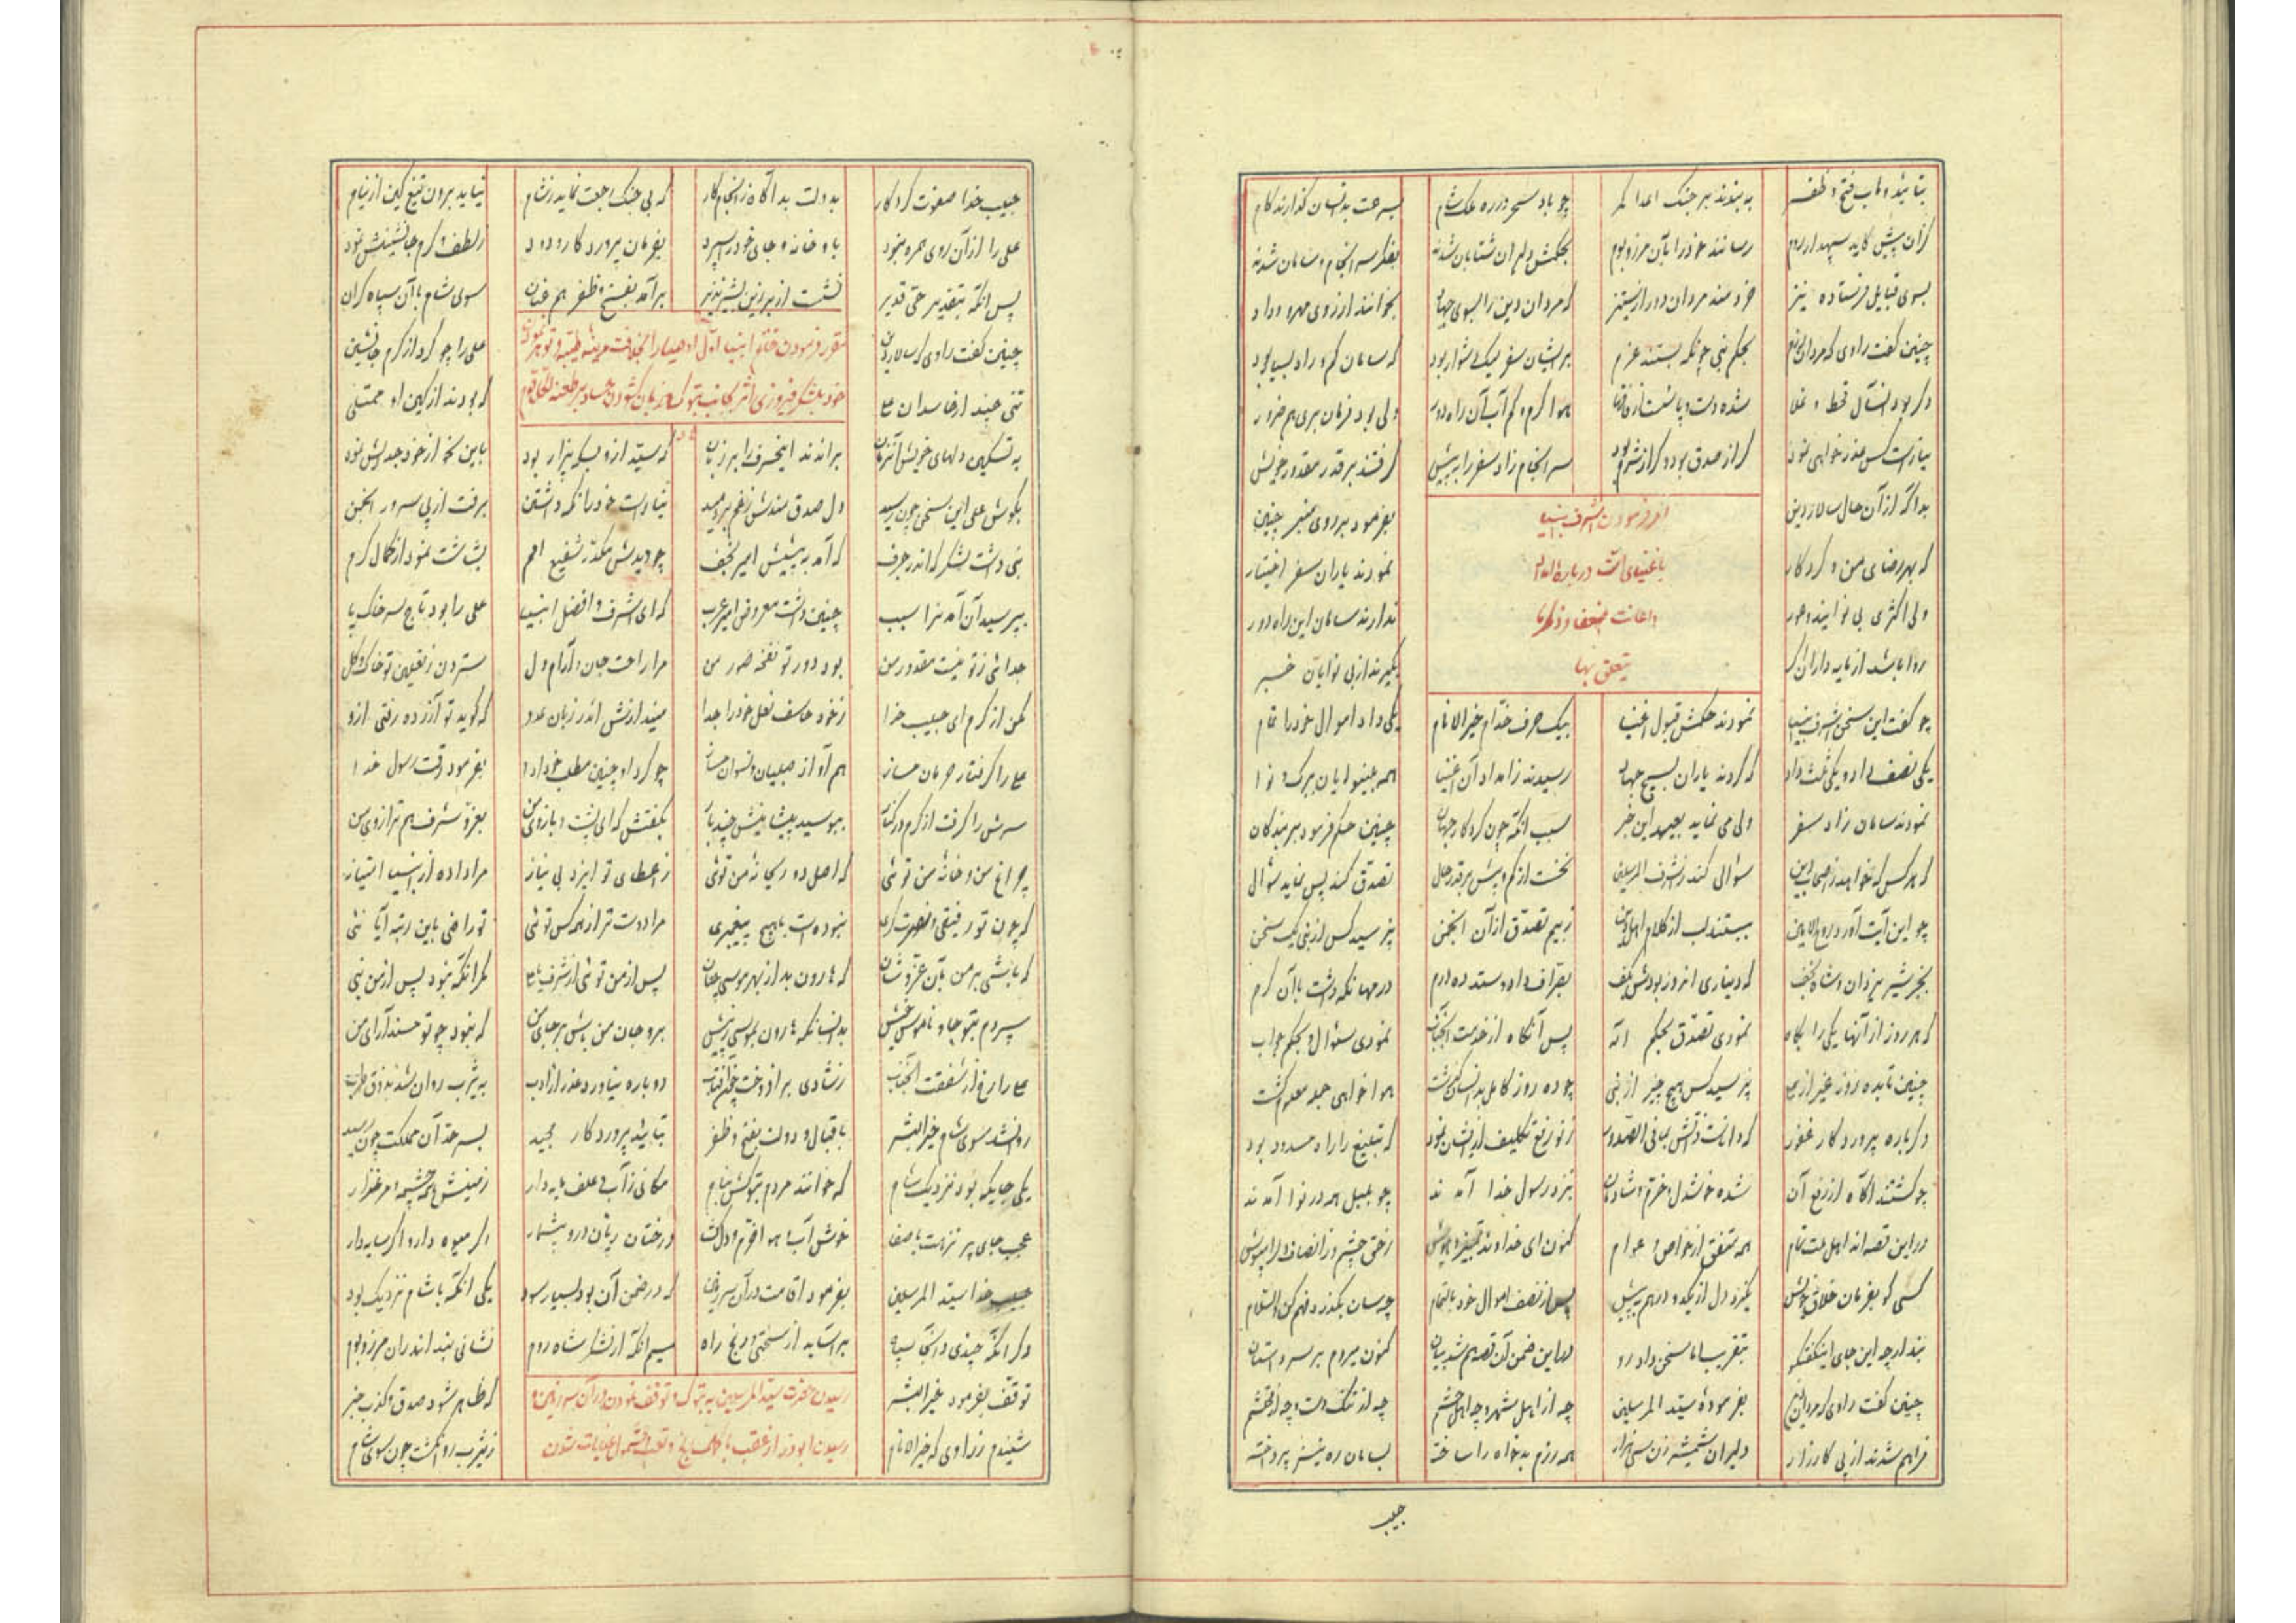 بتائید وهاب فتح و ظفر به بندند بر جنک اعدا کمر چو باد سحر در ره ملک شام بسرعت بدانسان گذارند کام
کزان پیش کاید سپهدار روم رسانند خود را بآن مرز و بوم بحکمش دلیران شتابان شدند بفکر سرانجام و سامان شدند
بسوی قبایل فرستاده نیز خردمند مردان دور از ستیز که مردان دین را بسوی جهاد بخوانند از روی مهر و وداد
چنین کفت راوی که مردان بحکم نبی چونکه بستند عزم بر ایشان سفر لیک دشوار بود که سامان کم و راه بسیار بود
دکر بود آنسال قحط و غلا شده دست و پا هوا کرم و کم آب آن راه دور ولی بود فرمان بری هم ضرور
نیارست کس عذرخواهی نمود کر از صدق بود و کر از شرم بود سرانجام زاد سفر را به پیش کرفتند بر قدر مقدور خویش
امر فرمودن اشرف انبیا
باغنیای امت درباره امداد
و اعانت ضعفا و ذکر ما
یتعلق بها
بداکه از آن حال سالار دین بفرمود بر روی منبر چنین
که بهر رضای من و کردکار نمودند یاران سفر اختیار
ولی اکثری بی نوایند و عور ندارند سامان این راه دور
روا باشد از مایه داران کر بکیرند از بی نوایان خبر
چو کفت این سخن اشرف انبیا نمودند حکمش قبول اغنیا بیک حرف خدام خیر الانام یکی داد اموال خود را تمام
یکی نصف داد و یکی ثلث داد که کردند یاران بسیج جهاد رسیدند ز امداد آن اغنیا همه بینوایان ببرک و نوا
نمودند سامان زاد سفر ولی می نماید بعید این خبر سبب آنکه چون کردکار جهان چنین حکم فرمود بر بندکان
که هر کس که خواهد ز اصحاب دین سوالی کند ز اشرف المرسلین نخست از کم و بیش بر قدر حال تصدق کند پس نماید سؤال
چو این آیت آورد روح الامین ببستند لب از کلام اهل دین ز بیم تصدق از آن انجمن نپرسید کس از نبی یک سخن
بجز شیر یزدان و شاه نجف که دیناری آنروز بودش بکف بصراف داد و ستد ده درم درمها نکه داشت با آن کرم
که هر روز از آنها یکی را بکاه نمودی تصدق بحکم اله پس آنکاه از خدمت آنجناب نمودی سؤال و بحکم جواب
چنین تا بده روز غیر از علی نپرسید کس هیچ چیز از نبی چو ده روز کامل بدانسان کذشت هوا خواهی جمله معلوم کشت
دکرباره پروردکار غفور که دانا است ذاتش بمافی الصدور ز نو رفع تکلیف از ایشان نمود که تبلیغ را راه مسدود بود
چو کشتند آکاه از رفع آن شده خوشدل و خرم و شادمان بنزد رسول خدا آمدند چو بلبل همه در نوا آمدند
درین قصه اند اهل ملت تمام همه متفق از خواص و عوام کنون ای خداوند تمییز و هوش ز حق چشم و ز انصاف را مپوش
کسی کو بفرمان خلاق خویش نکند دل از یکدو درهم به پیش پس از نصف اموال خود با تمام چه سان بکذرد فهم کن والسلام
نبد ارچه این جای این کفتکو بتقریب اما سخن داد رو درین ضمن آن قصه هم شد بیان کنون میروم بر سر داستان
چنین کفت راوی که مردان بفرموده سید المرسلین چه از اهل شهر و چه اهل حشم چه از تنکدست و چه از محتشم
فراهم شدند از پی کارزار دلیران شمشیر زن سی هزار همه رزم بدخواه را ساخته بسامان ره نیز پرداخته
حبیب
حبیب خدا صفوت کردکار بدولت بد آکاه ز انجام کار که بی جنک رجعت نماید ز شام نیاید برون تیغ کین از نیام
علی را از آن روی همره نبرد باو خانه و جای خود را سپرد بفرمان پروردکار ودود ز لطف و کرم جانشینش نمود
پس آنکه بتقدیر حی قدیر نشست از بر زین بشیر نذیر برآمد بفتح و ظفر هم عنان سوی شام با آن سپاه کران
مقرر فرمودن خاتم انبیا اول اوصیا را بخلافت مدینه طیبه و توجه نمودن
خود بلشکر فیروزی اثر بجانب تبوک و زبان کشودن حساد بر طعنه
چنین کفت راوی که سالار دین علی را چو کرد از کرم جانشین
تنی چند از حاسدان علی که بودند از کین او ممتلی
به تسکین دلهای خویش آنزمان براندند این حرف را بر زبان که سید ازو بسکه بیزار بود باین نحو از خود جدایش نمود
بکوش علی این سخن چون رسید دل صدق مندش ز غم بردمید نیارست خود را نکه داشتن برفت از پی سرور انجمن
نبی داشت لشکر که اندر جرف که آمد به پیشش امیر نجف چو دیدش مکدر شفیع امم بشاشت نمود از کمال کرم
بپرسید از آن آمدن را سبب چنین داشت معروض امیر عرب که ای اشرف و افضل انبیا علی را بود تاج سر خاک پا
جدائی ز تو نیست مقدور من بود دور تو نفخه صور من مرا راحت جان و آرام دل ستردن ز نعلین تو خاک و کل
مکن از کرم ای حبیب خدا ز خود خاصف نعل خود را جدا میندازش اندر زبان عدو که کوید تو آزرده رفتی ازو
علی را کرفتار حرمان مساز هم آواز صبیان و نسوان مساز چو کرد او چنین مطلب خود ادا بفرمود رقت رسول خدا
سرش را کرفت از کرم در کنار ببوسید پیشانیش چند بار بکفتش که ای پشت و بازوی من بعز و شرف هم ترازوی من
چراغ من و خانه من توئی که اصل دو ریحانه من توئی ز اعطای تو ایزد بی نیاز مرا داده از انبیا امتیاز
که چون تو رفیقی و نصرت کری نبوده است با هیچ پیغمبری مرا دوست تر از همه کس توئی تو راضی باین رتبه آیا نئی
که باشی بر من بآن عز و شان که هارون بد از بهر موسی چنان پس از من توئی از شرف یا علی مکر آنکه نبود پس از من نبی
سپردم بتو جا و ناموس خویش بدانسانکه هارون بموسی ز پیش برو جان من باش بر جای من که نبود چو تو مسند آرای من
علی را رخ از شفقت آنجناب ز شادی برافروخت چون آفتاب دوباره نیاورد عذر از ادب به یثرب روان شد بذوق طرب
روان شد سوی شام خیر البشر باقبال و دولت بفتح و ظفر بتائید پروردکار مجید بسرحد آن مملکت چون رسید
یکی جایکه بود نزدیک شام که خوانند مردم تبوکش بنام مکانی ز آب و علف مایه دار زمینش همه چشمه و مرغزار
عجب جای پر نزهت با صفا خوش آب هوا خرم و دلکشا درختان ریان درو بیشمار اکر میوه دار و اکر سایه دار
حبیب خدا سید المرسلین بفرمود اقامت در آن سرزمین که در ضمن آن بود بسیار سود یکی آنکه با شام نزدیک بود
دکر آنکه چندی در آنجا سپاه بر آساید از سختی و رنج راه سیم آنکه از لشکر شاه روم نشانی نبد اندران مرز و بوم
توقف بفرمود خیر البشر که ظاهر شود صدق و کذب خبر
رسیدن حضرت سید المرسلین به تبوک و توقف نمودن در آن سرزمین و
رسیدن ابوذر از عقب
شنیدم ز راوی که خیر الانام ز یثرب روان کشت چون سوی شام